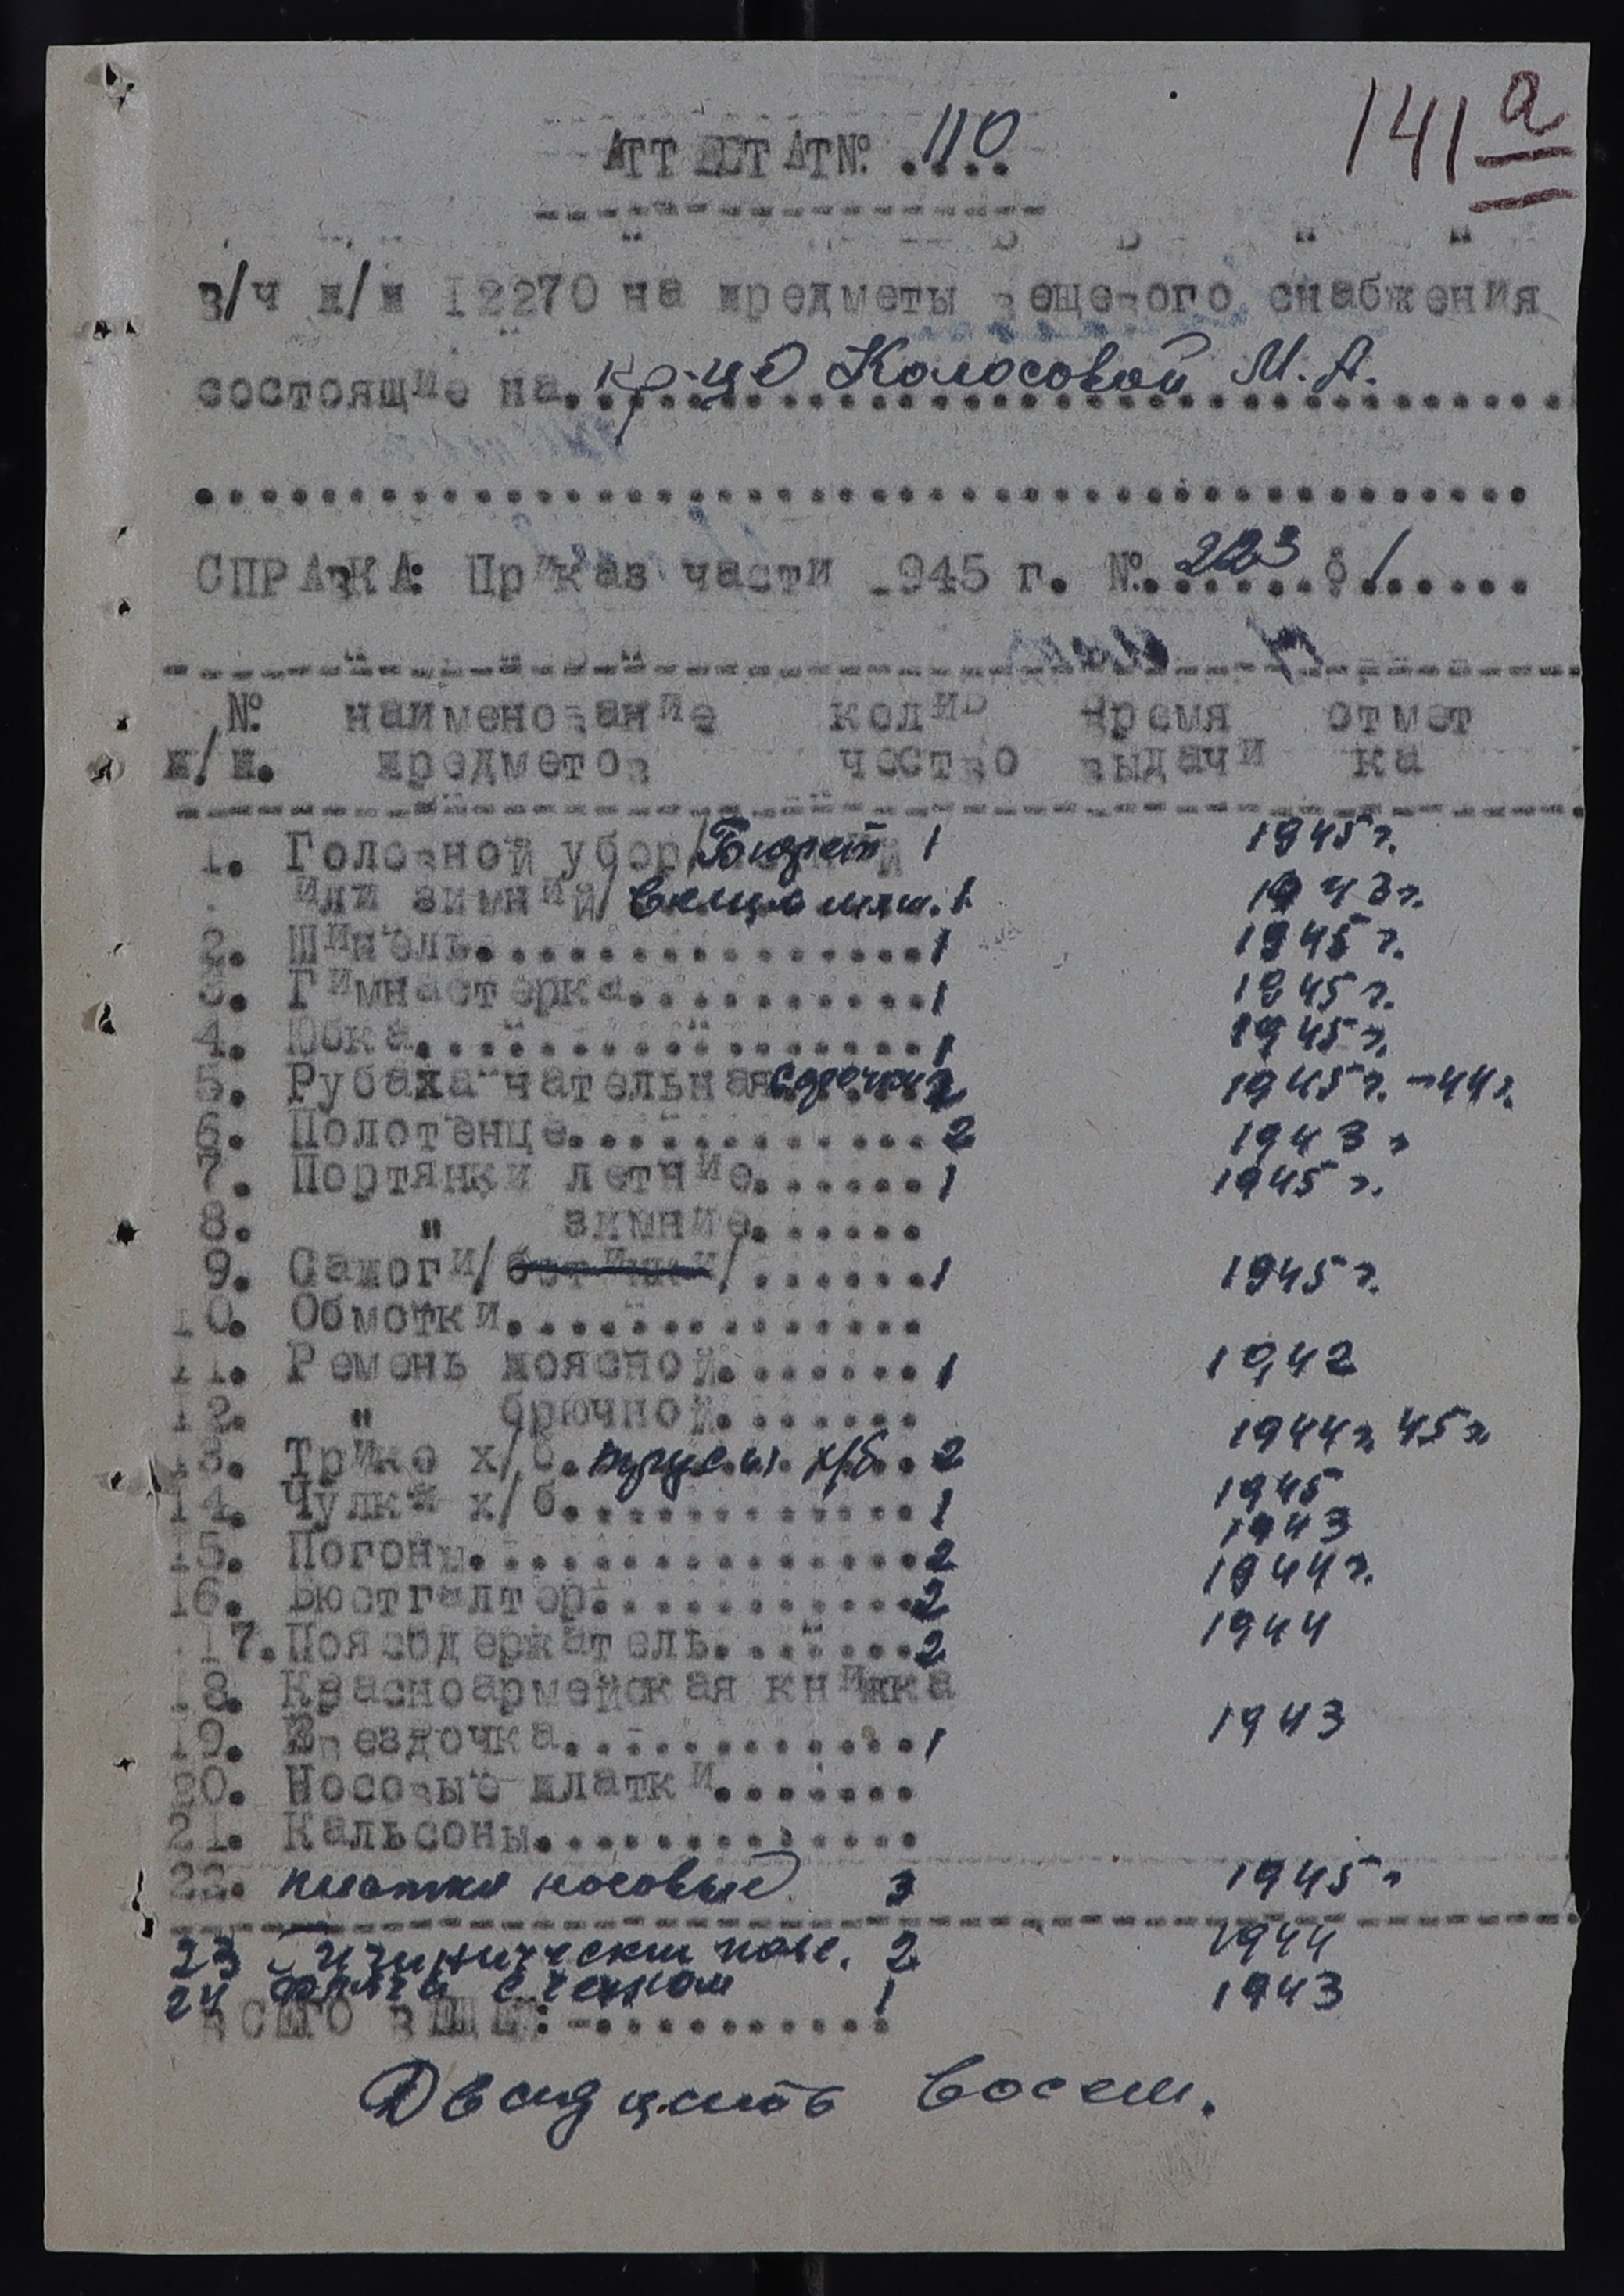 141 а
АТТЕСТАТ № .110..
в/ч п/п 12270 на предметы вещевого снабжения
состоящие на. кр-це Колосовой М. А.
СПРАВКА: Приказ части 1945 г. №. 223 § 1
№ наименование коли время отмет
п/п. предметов чество выдачи ка
1. Головной убор/ Бюрет 1 1945 г.
или зимний/ 1 1943 г.
2. Шинель. 1 1945 г.
3. Гимнастерка. 1 1945 г.
4. Юбка. 1 1945 г.
5. Рубаха нательная сорочки 2 1945 г. - 44 г.
6. Полотенце. 2 1943 г
7. Портянки летние. 1 1945 г.
8. " зимние.
9. Сапоги/ботинки/ 1 1945 г.
10. Обмотки.
11. Ремень поясной. 1 1942
12. " брючной.
13. Трико х/б. трусы х/б. 2 1944 г 45 г
14. Чулки х/б. 1 1945
15. Погоны. 2 1943
16. Бюстгалтер. 2 1944 г.
17. Поясодержатель. 2 1944
18. Красноармейская книжка
19. Звездочка. 1 1943
20. Носовые платки.
21. Кальсоны.
22. платки носовые 3 1945 г
23 Гигиническии пояс. 2 1944
24 Фляга с чехлом 1 1943
ВСЕГО ВЕЩЕЙ: -
Двадцать восем.